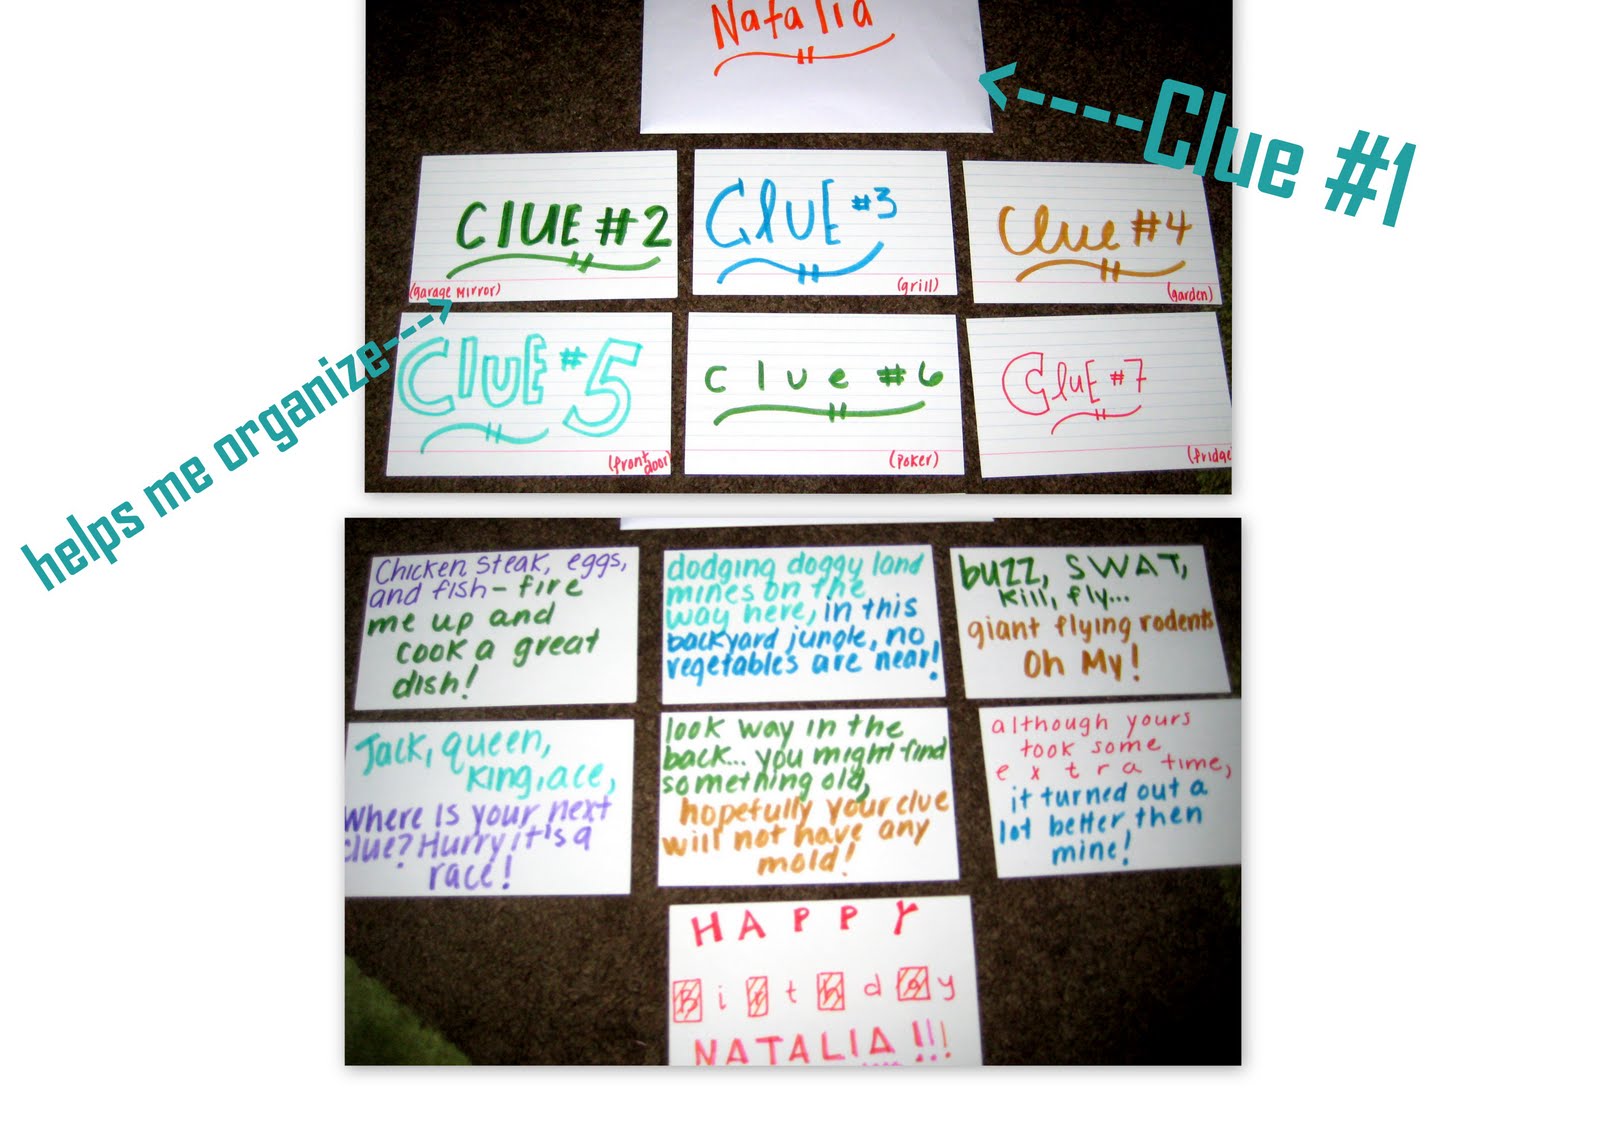 Natalia
<----Clue #1
CLUE #2
(garage MIRROR)
CLUE #3
(grill)
Clue #4
(garden)
helps me organize--->
CLUE #5
(front
door)
clue #6
(Poker)
CLUE #7
(fridge
Chicken steak, eggs,
and fish - fire
me up and
cook a great
dish!
dodging doggy land
mines on the
way here, in this
backyard jungle, no
vegetables are near!
buzz, SWAT,
kill, fly...
giant flying rodents
Oh My!
Jack, queen,
King, ace,
Where is your next
clue? Hurry it's a
race!
look way in the
back... you might find
something old,
hopefully your clue
will not have any
mold!
although yours
took some
extra time,
it turned out a
lot better then
mine!
HAPPY
Birthday
NATALIA!!!